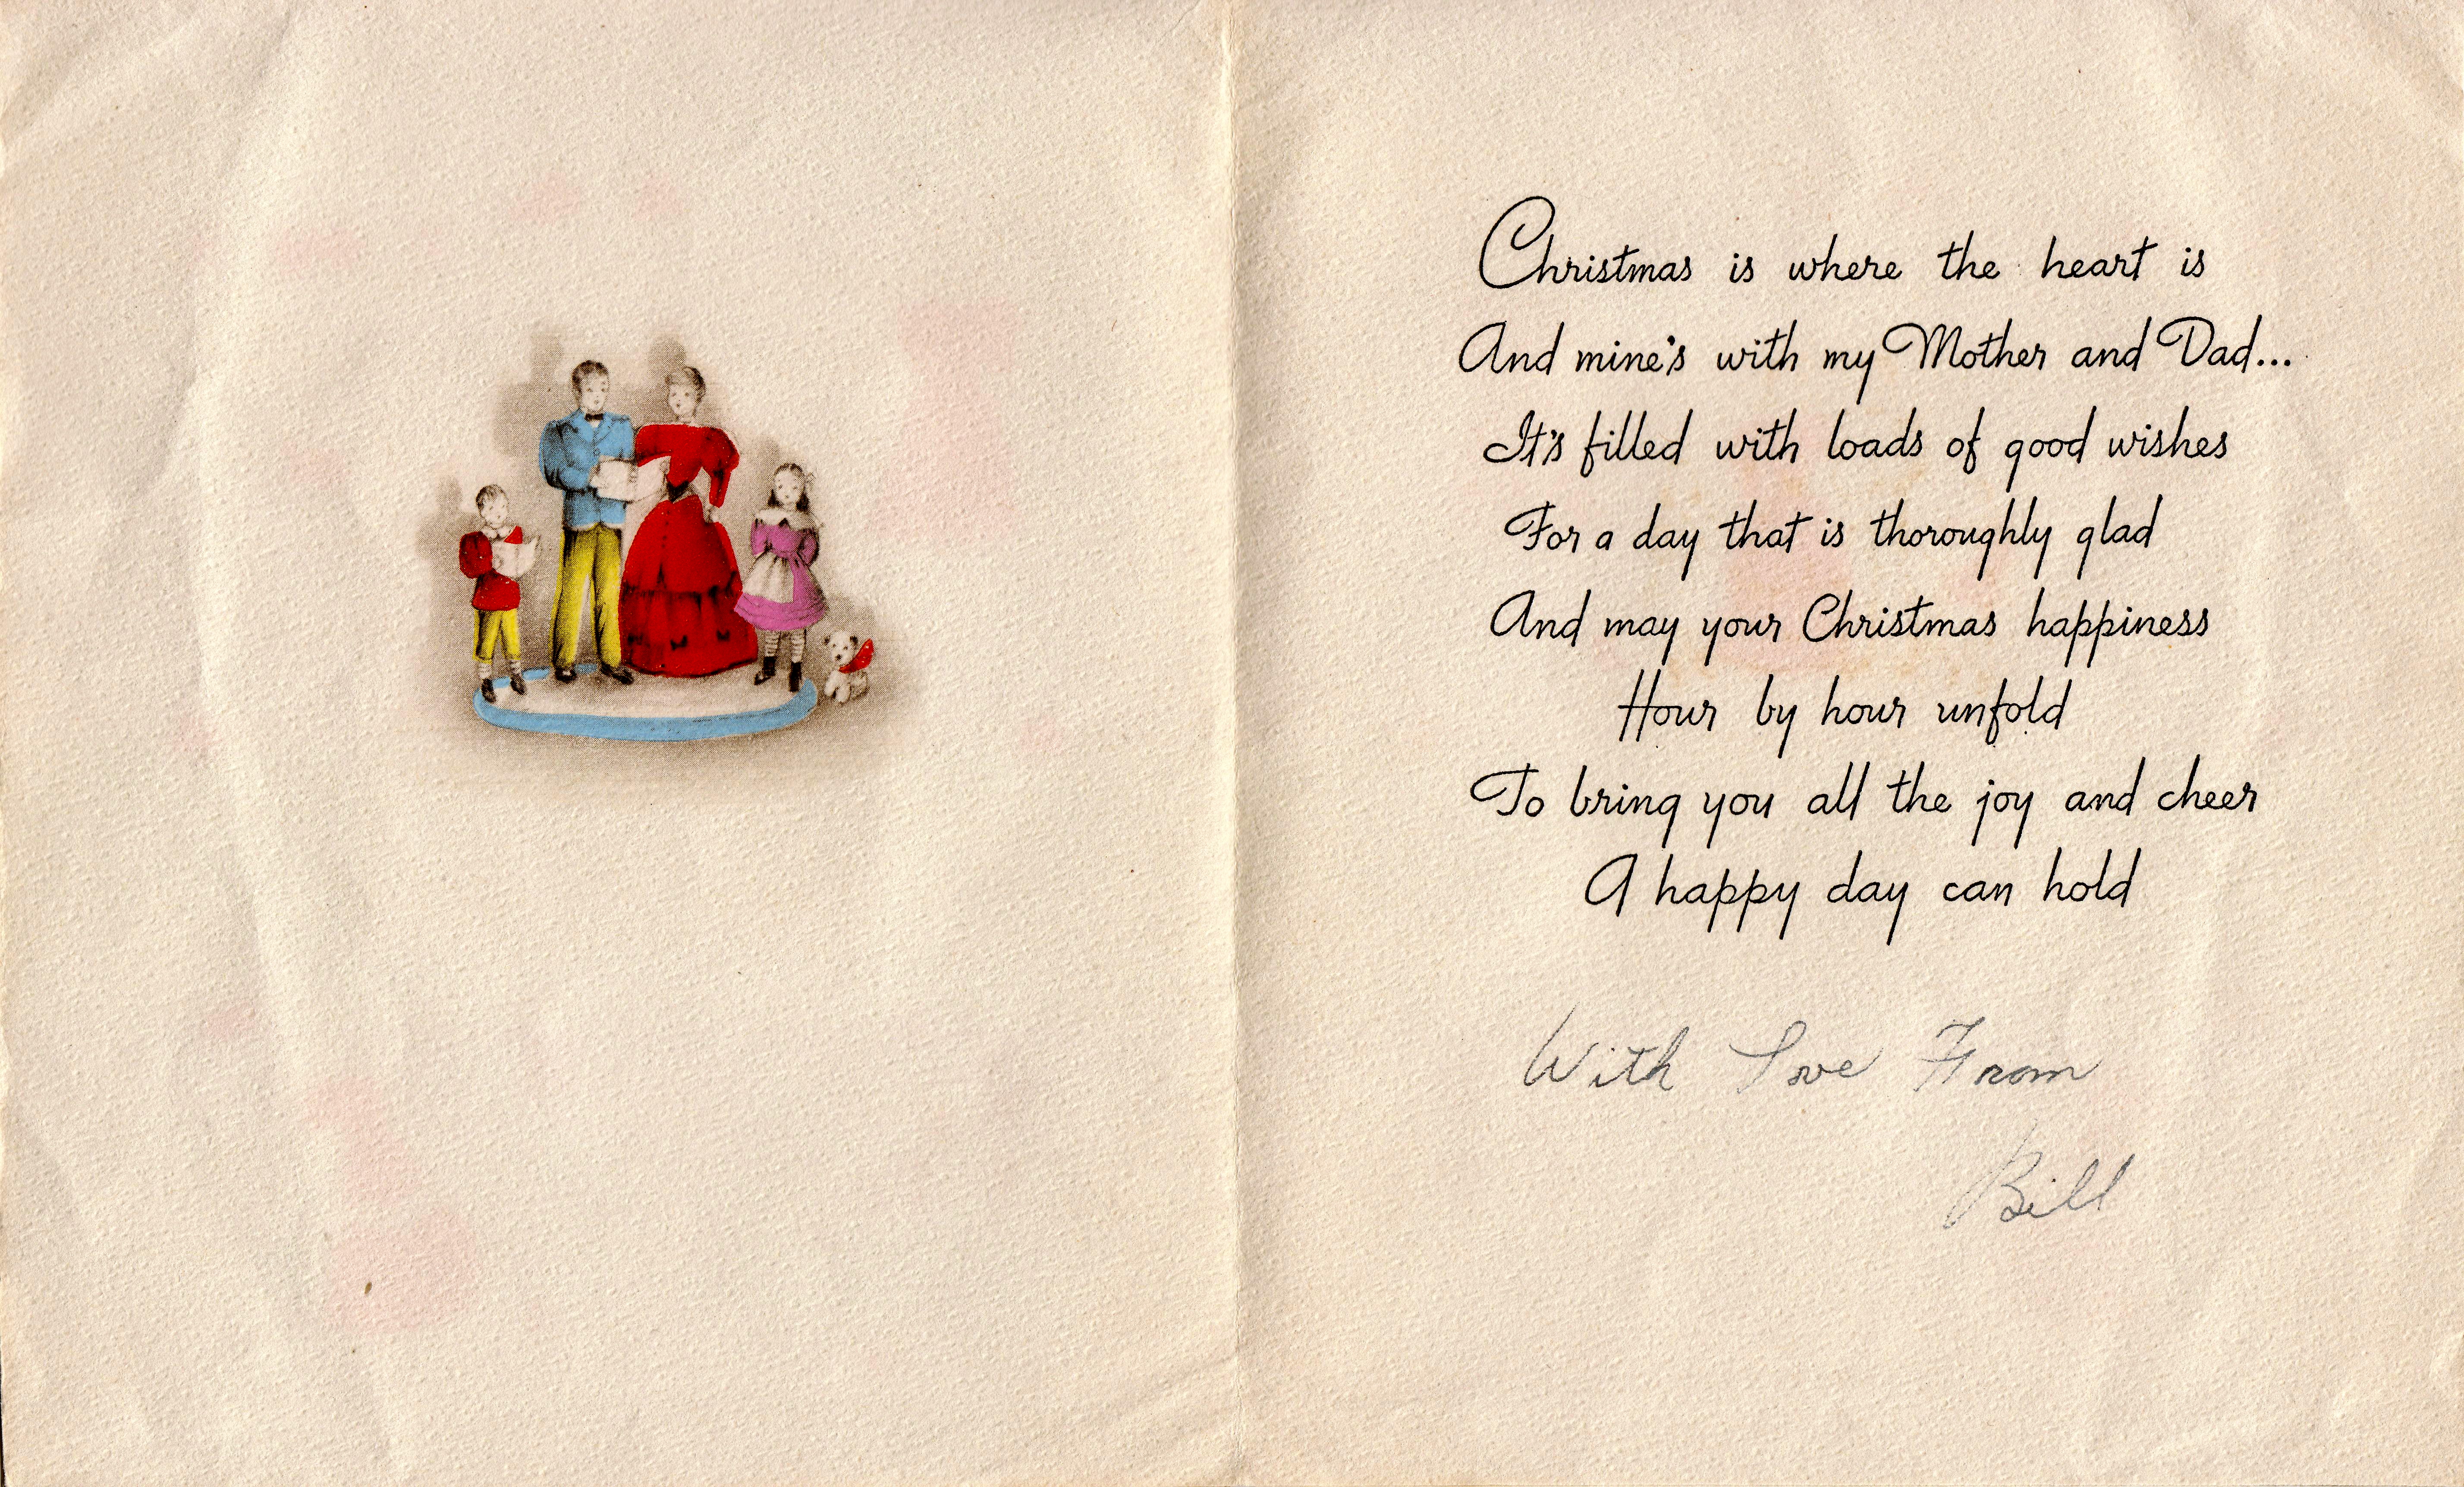 Christmas is where the heart is
And mine's with my Mother and Dad...
It's filled with loads of good wishes
For a day that is thoroughly glad
And may your Christmas happiness
Hour by hour unfold
To bring you all the joy and cheer
A happy day can hold
With Love From
Bill